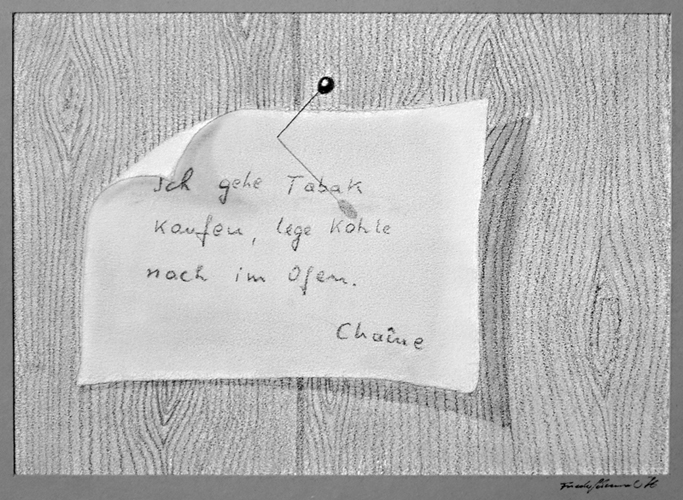 Ich gehe Tabak
kaufen, lege Kohle
nach im Ofen.
Chaîne